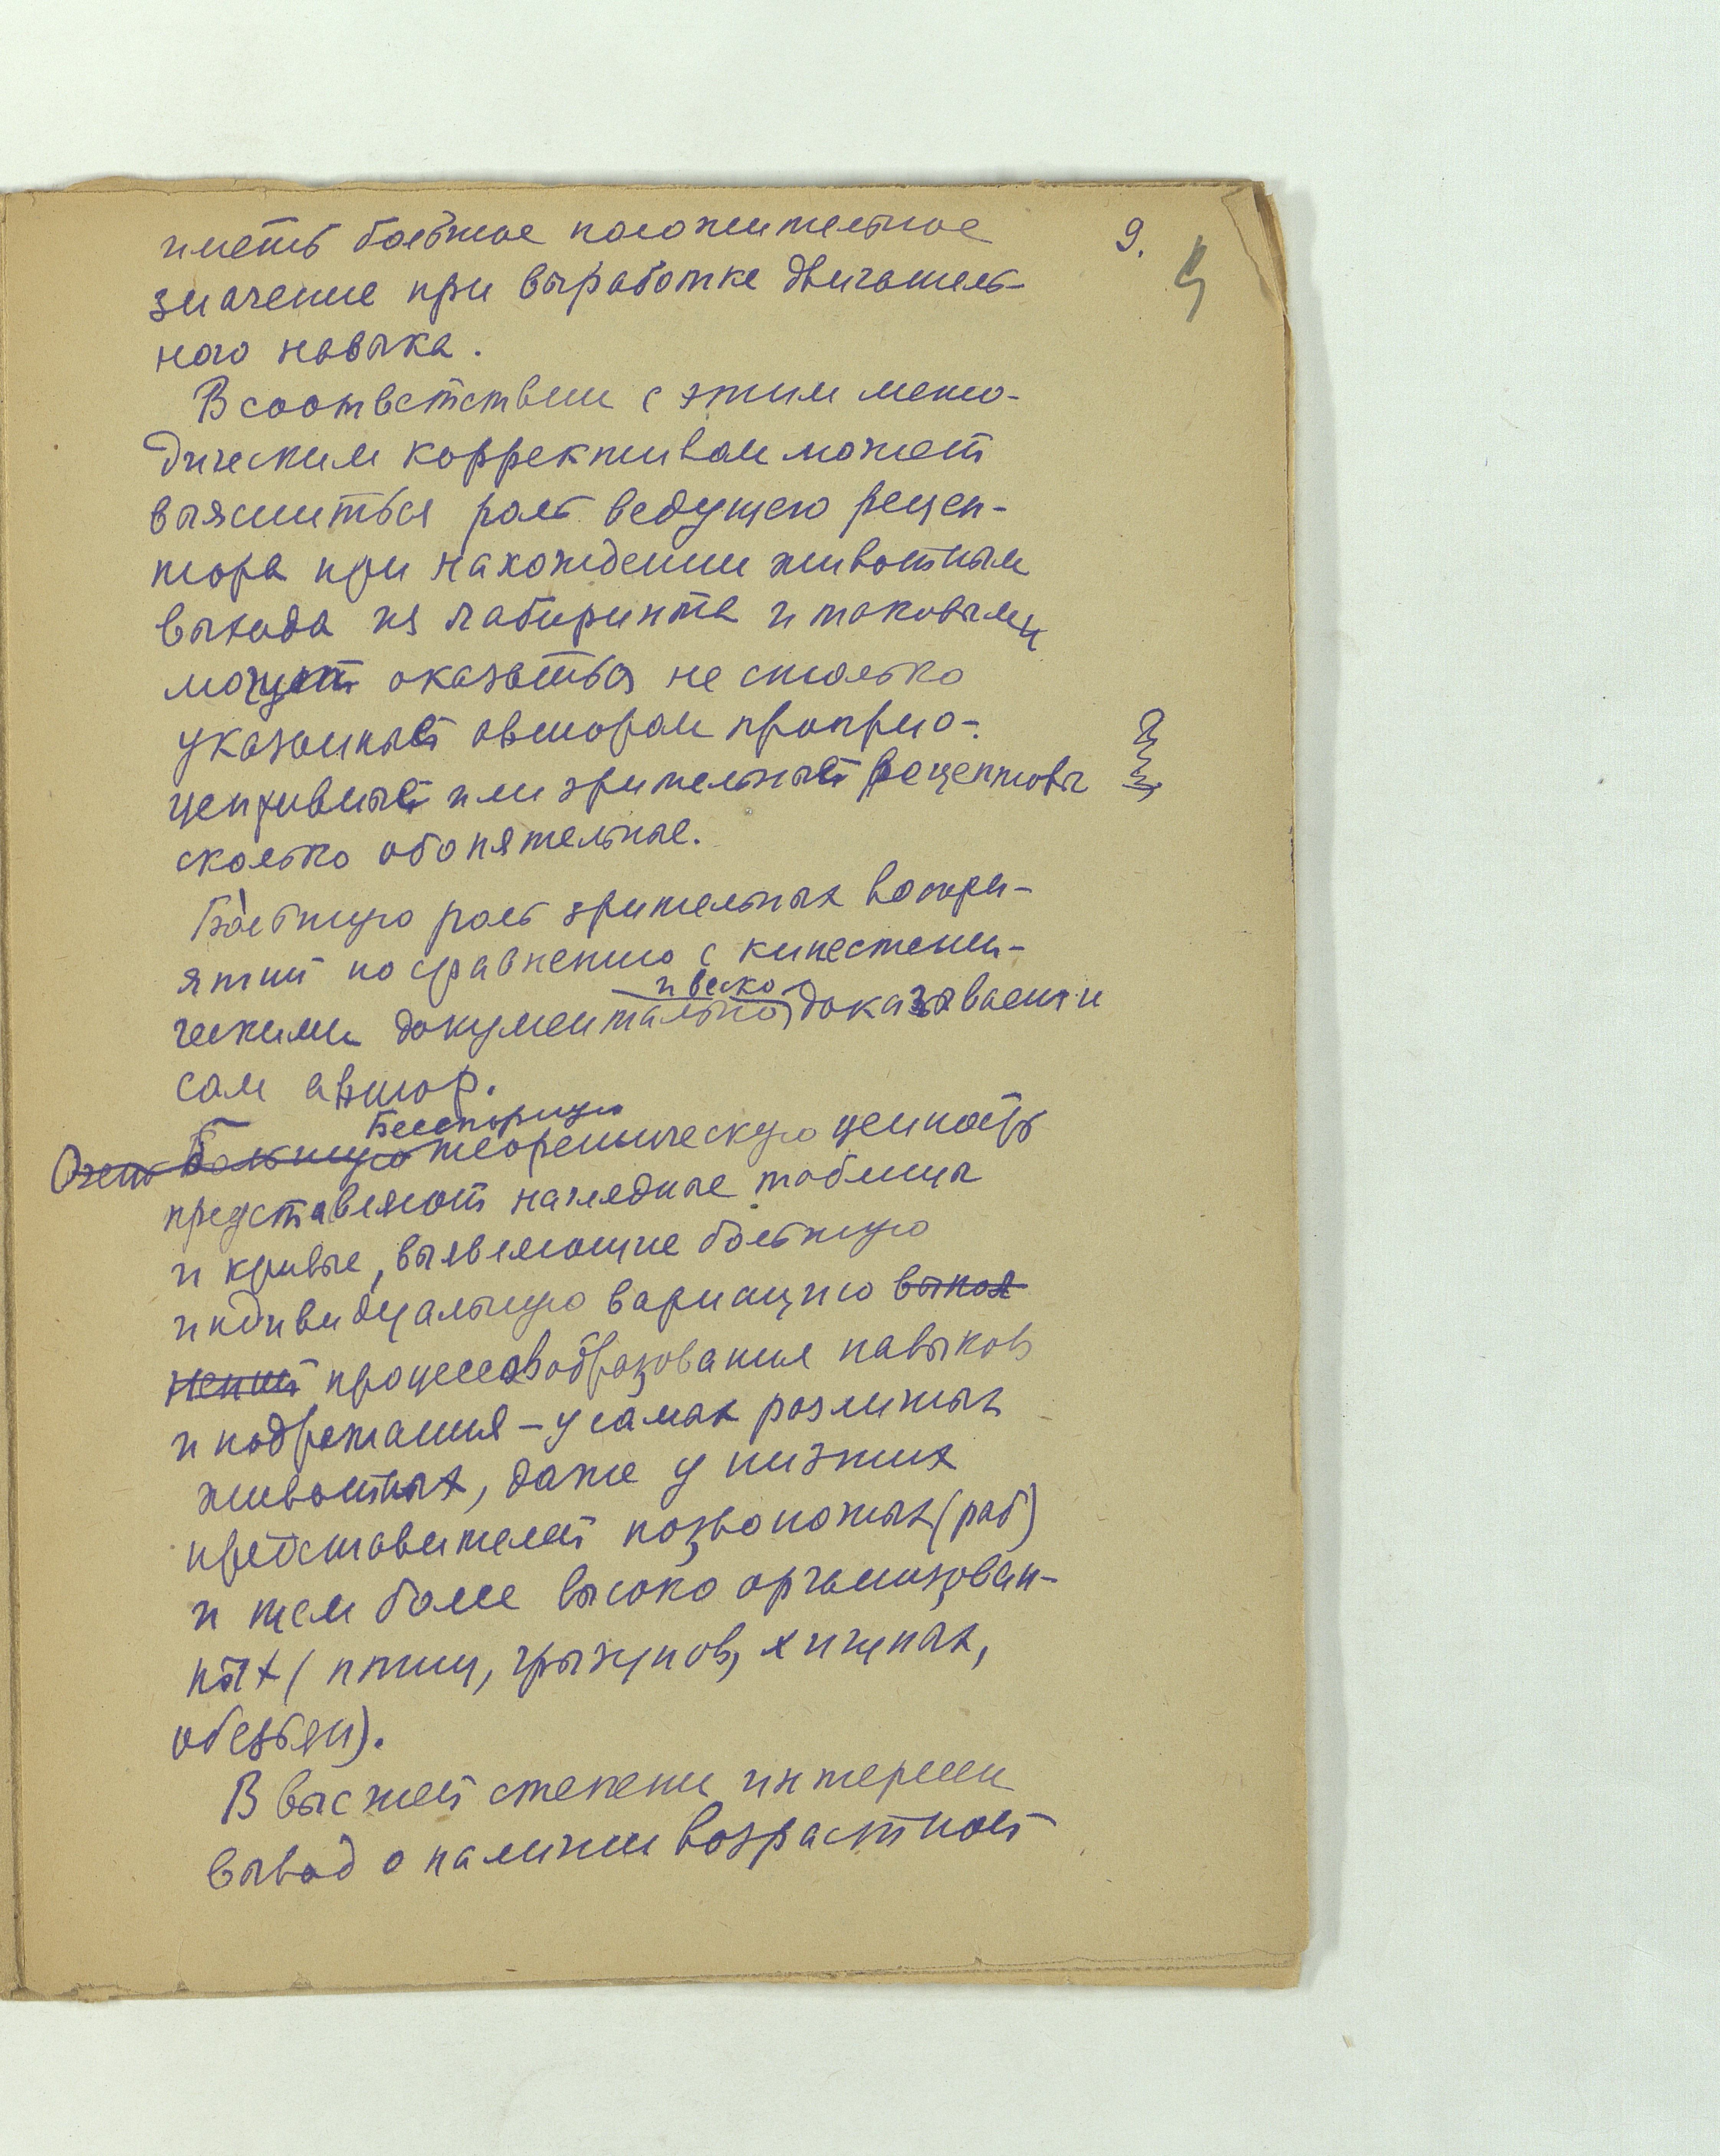 9.
иметь большое положительное
значение при выработке двигатель-
ного навыка.
В соответствии с этим мето-
дическим коррективам может
выясниться роль ведущего рецеп-
тора при нахождении животным
выхода из лабиринта и таковыми
могут оказаться не столько
указанные автором проприо-
цептивные или зрительные рецепторы
сколько обонятельные.
Большую роль зрительных воспри-
ятий по сравнению с кинестети-
ческими документально и веско доказывает и
сам автор.
Очень Большую Бесспорную теоретическую ценность
представляют наглядные таблицы
и кривые, выявляющие большую
индивидуальную вариацию выпол
нений процессов образования навыков
и подражания – у самых различных
животных, даже у низших
представителей позвоночных (рыб)
и тем более высоко организован-
ных (птиц, грызунов, хищных,
обезьян).
В высшей степени интересен
вывод о наличии возрастной